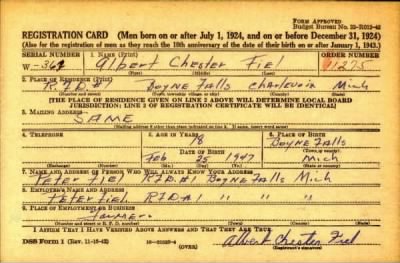 FORM APPROVED
Budget Bureau No. 33-R012-42
REGISTRATION CARD (Men born on or after July 1, 1924, and on or before December 31, 1924)
(Also for the registration of men as they reach the 18th anniversary of the date of their birth on or after January 1, 1943.)
SERIAL NUMBER 1. NAME (Print) ORDER NUMBER
W-361 Albert Chester Fiel 11275
(First) (Middle) (Last)
2. PLACE OF RESIDENCE (Print)
R.F.D.#1 Boyne Falls Charlevoix Mich
(Number and street) (Town, township, village, or city) (County) (State)
[THE PLACE OF RESIDENCE GIVEN ON LINE 2 ABOVE WILL DETERMINE LOCAL BOARD
JURISDICTION; LINE 2 OF REGISTRATION CERTIFICATE WILL BE IDENTICAL]
3. MAILING ADDRESS
SAME
(Mailing address if other than place indicated on line 2. If same, insert word same)
4. TELEPHONE 5. AGE IN YEARS 6. PLACE OF BIRTH
18 Boyne Falls
DATE OF BIRTH (Town or county)
Feb 25 Mich
(Exchange) (Number) (Mo.) (Day) (Yr.) (State or country)
7. NAME AND ADDRESS OF PERSON WHO WILL ALWAYS KNOW YOUR ADDRESS
Peter Fiel RFD #1 Boyne Falls Mich
8. EMPLOYER'S NAME AND ADDRESS
Peter Fiel RFD#1 " " "
9. PLACE OF EMPLOYMENT OR BUSINESS
Farmer
(Number and street or R. F. D. number) (Town) (County) (State)
I AFFIRM THAT I HAVE VERIFIED ABOVE ANSWERS AND THAT THEY ARE TRUE.
DSS Form 1 (Rev. 11-16-42) (OVER) Albert Chester Fiel
(Registrant's signature)